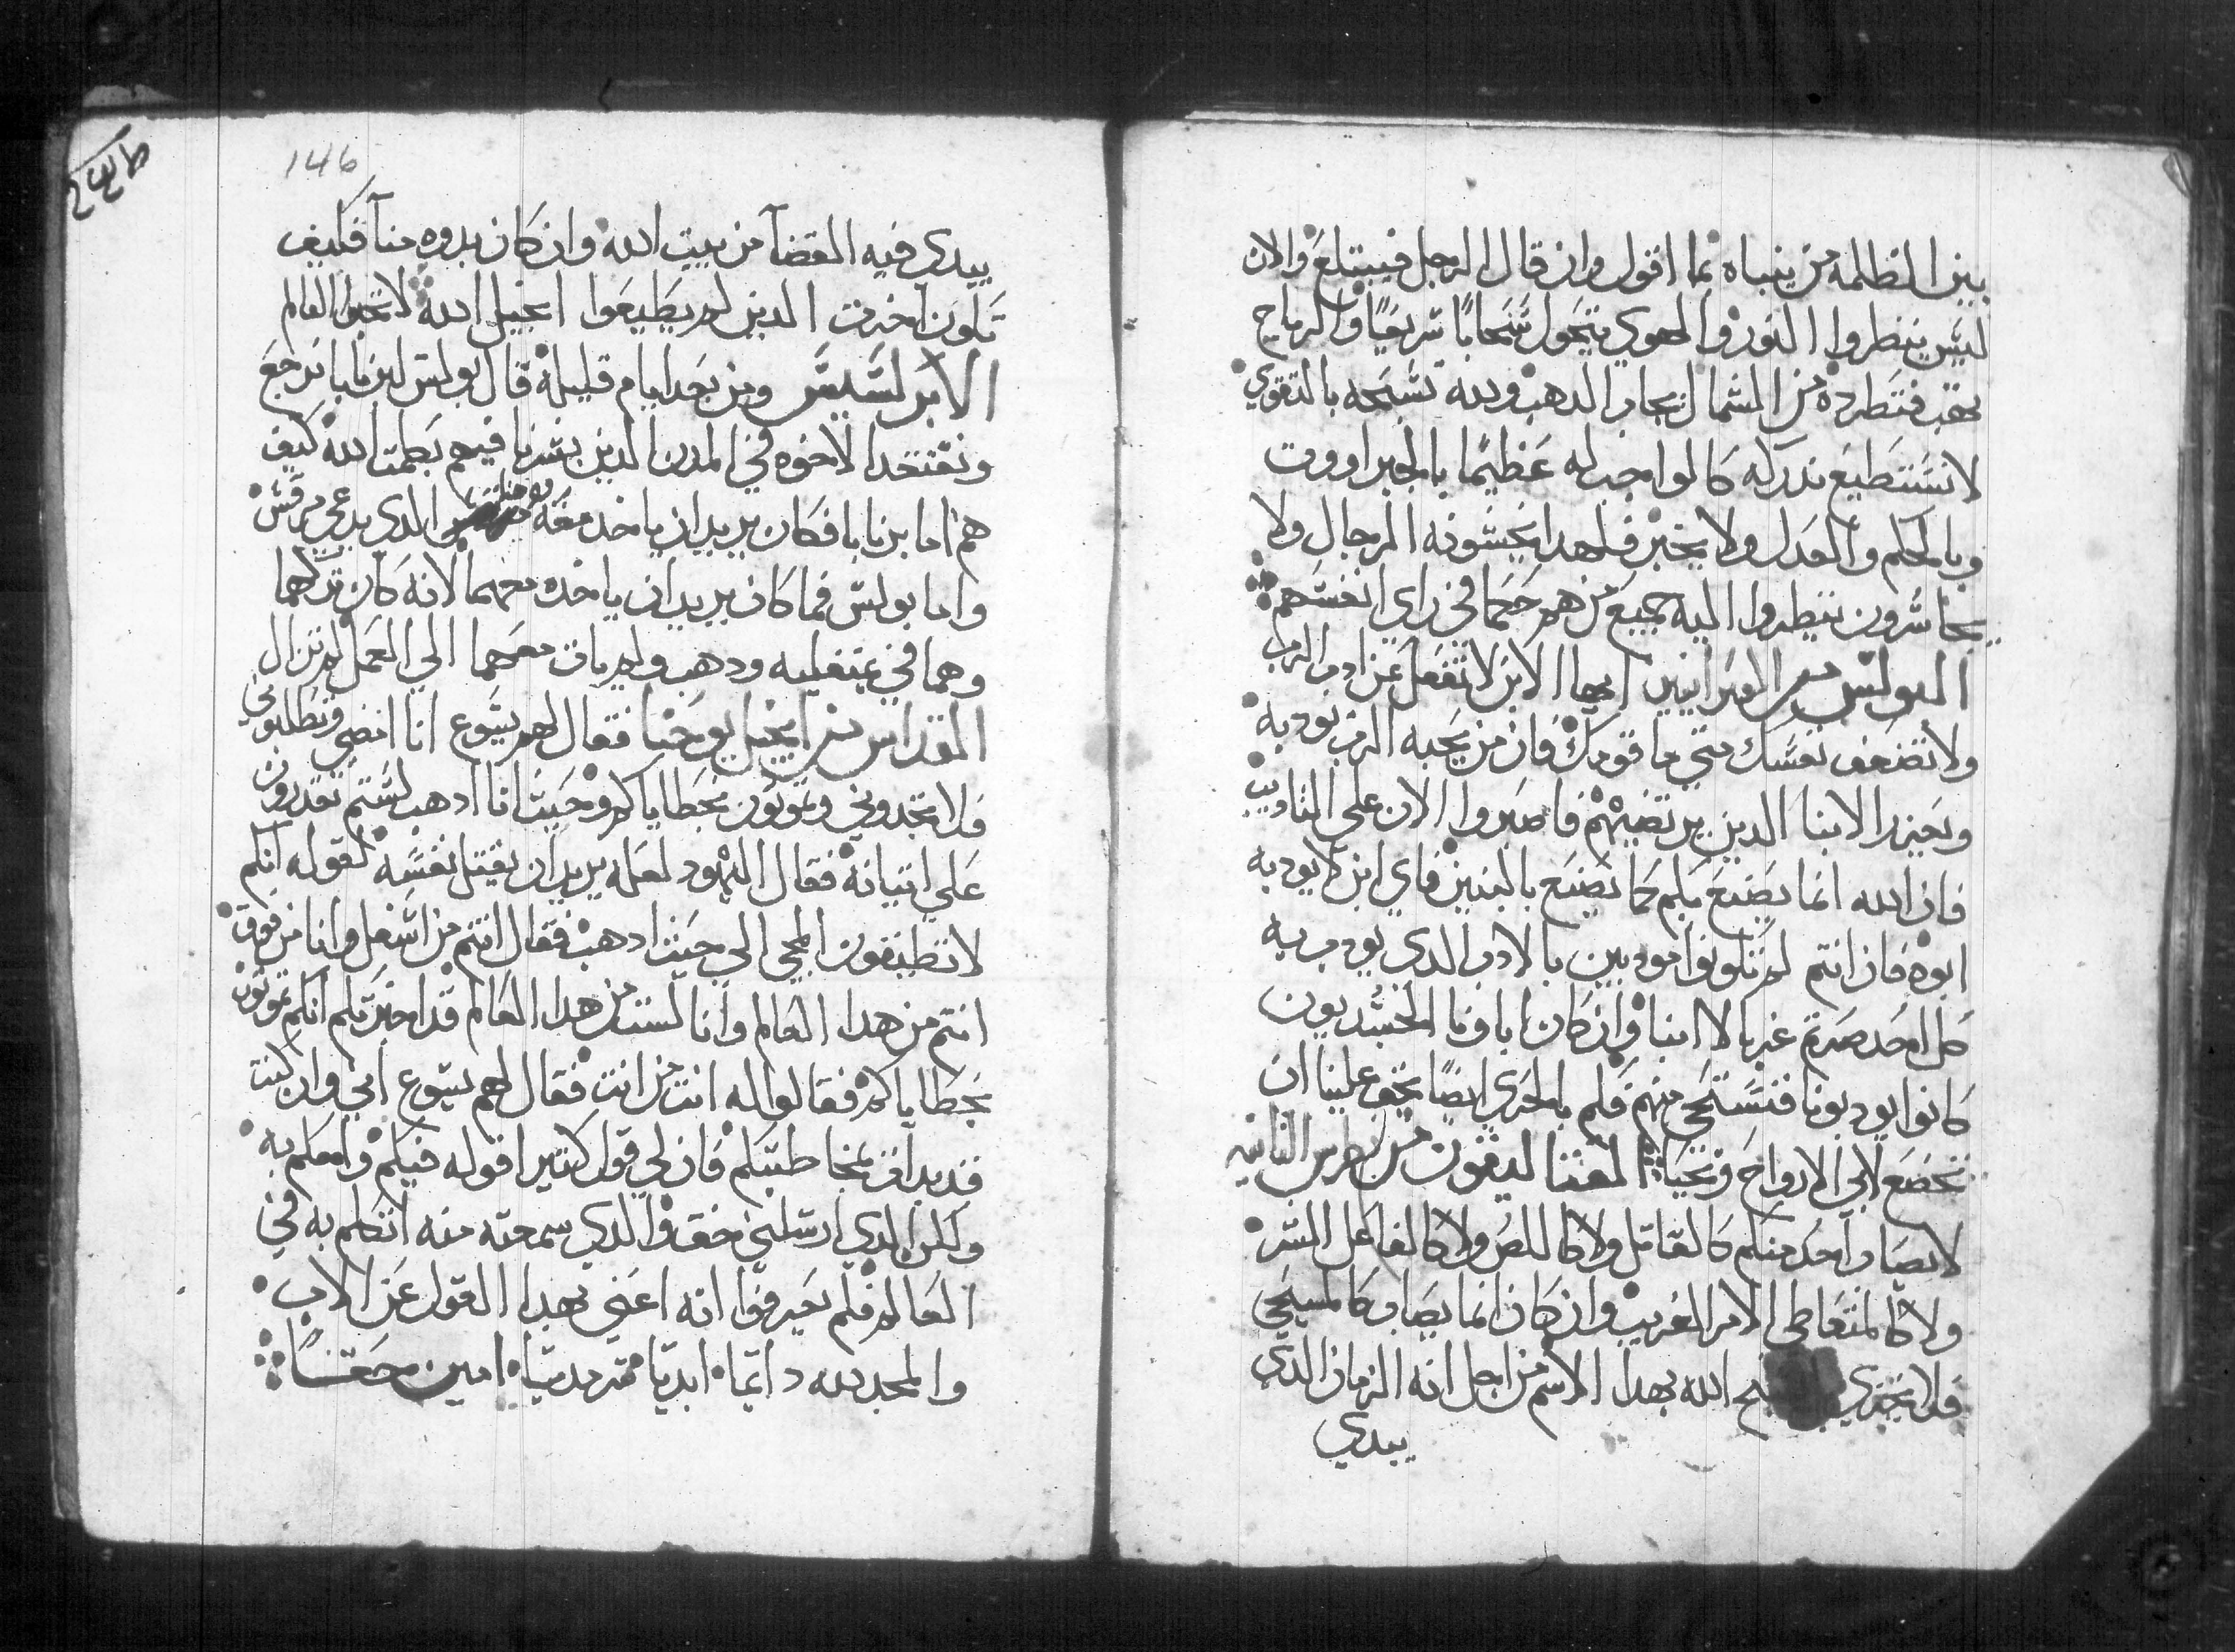 بين الظلمه من ينباه نما اقول وان قال الرجل فيبتلع والان
ليس ينظروا النور والهوي يتحول سحابًا سريعيًا والرياح
تعقب فتطرده من الشمال بحار الدهب ولله تسبحه بالتقوي
لا نستطيع ندركه كالواجب له عظيمًا بالجبرا ووت
وبالحكم والعدل ولا يخبر فلهدا يخشونه الرجال ولا
يجاسرون ينظروا اليه جميع من هم حكما في راي انفسهم
البولس من العبرانيين ايها الابن لا تغفل عن ادب الرب
ولا تضعف نفسك متي ما قومك فان من يحبه الرب يودبه
ويعزر الابنا الدين يرتضيهم فاصبروا الان علي التاديب
فان الله انما يصنع بكم كما يصنع بالبنين فاي ابن لا يودبه
ابوه فان انتم لم تكونوا مودبين بالادب الدي يودب به
كل احد صرتم غربا لا ابنا وان كان اباونا الجسديون
كانوا يودبونا فنستحي منهم فكم بالحري ايضًا يحق علينا ان
نخضع لابي الارواح ونحيا القتاليقون من بطرس الثانيه
لا يصاب احد منكم كالقاتل ولا كاللص ولا كالفاعل الشر
ولا كالمتعاطي الامر الغريب وان كان انما يصاب كالمسيحي
فلا يخزي بح الله بهدا الاسم من اجل انه الزمان الدي
يبدي
146
يبدي فيه القضآ من بيت الله وان كان بدوه منآ فكيف
تكون اخرت الدين لم يطيعوا انجيل الله لا تحبوا العالم
الابركسيس ومن بعد ايام قليله قال بولس لبرنابا نرجع
ونفتقد الاخوه في المدن الدين بشرنا فيهم بكلمت الله كيف
هم اما برنابا فكان يريد ان ياخد معه يوحنا الدي يدعي مرقس
واما بولس فما كان يريد ان ياخده معهما لانه كان تركهما
وهما في بمفليه ودهب ولم يات معهما الي العمل لم تزال
القداس من انجيل يوحنا فقال لهم يسوع انا امضي وتطلبوني
فلا تجدوني وتموتون بخطاياكم وحيث انا ادهب لستم تقدرون
علي اتيانه فقال اليهود لعله يريد ان يقتل نفسه لقوله انكم
لا تطيقون المجي الي حيث ادهب فقال انتم من اسفل وانا من فوق
انتم من هدا العالم وانا لست من هدا العالم قد اخبرتكم انكم تموتون
بخطاياكم فقالوا له انت من انت فقال لهم يسوع اني وان كنت
قد بدات بمخاطبتكم فان لي قول كتير اقوله فيكم واحكم به
ولكن الدي ارسلني حق والدي سمعته منه اتكلم به في
العالم فلم يعرفوا انه اعني بهدا القول عن الاب
والمجد لله دآيمًا ابديًا سرمديًا امين حقًا